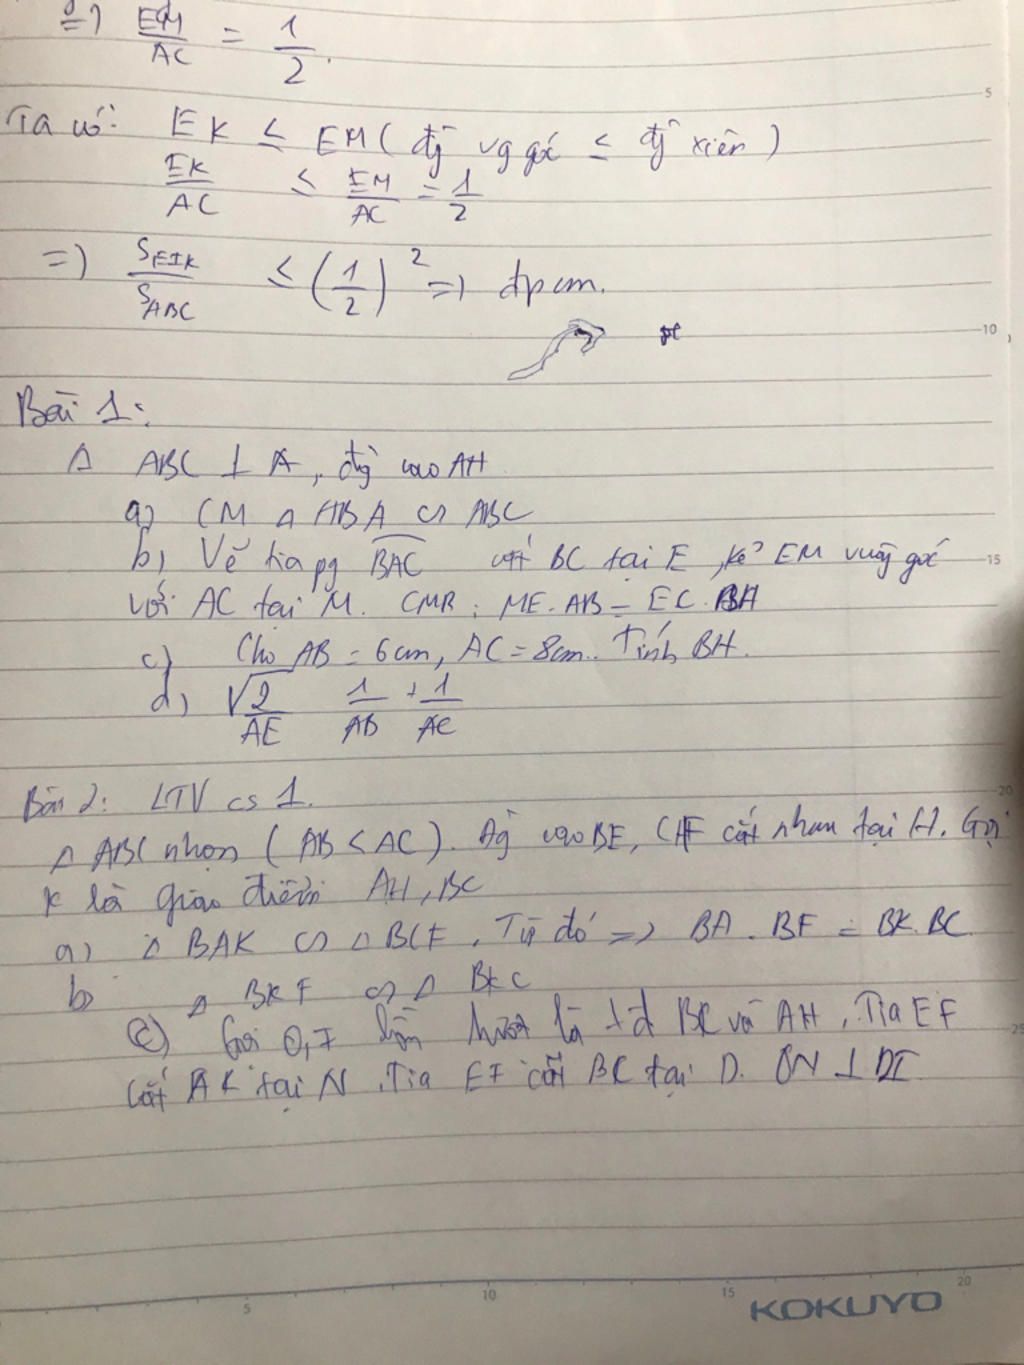 => EM/AC = 1/2.
5
Ta có: EK ≤ EM ( đg vg góc ≤ đg xiên )
EK/AC ≤ EM/AC = 1/2
=> S_EIK/S_ABC ≤ (1/2)² => đpcm.
10
Bài 1:
Δ ABC ⊥ A, đg cao AH
a) CM Δ HBA ∽ ABC
b) Vẽ tia pg BAC cắt BC tại E, kẻ EM vuông góc
15
với AC tại M. CMR: ME.AB = EC.BH
c) Cho AB = 6cm, AC = 8cm. Tính BH.
d) √2/AE 1/AB + 1/AC
20
Bài 2: LTV cs 1.
Δ ABC nhọn ( AB < AC ). Đg cao BE, CF cắt nhau tại H. Gọi
K là giao điểm AH, BC
a) Δ BAK ∽ Δ BCF. Từ đó => BA.BF = BK.BC
b) Δ BKF ∽ Δ BEC
c) Gọi O, I lần lượt là tđ BC và AH. Tia EF
25
cắt AK tại N. Tia EI cắt BC tại D. ON ⊥ DI
5 10 15 20
KOKUYO